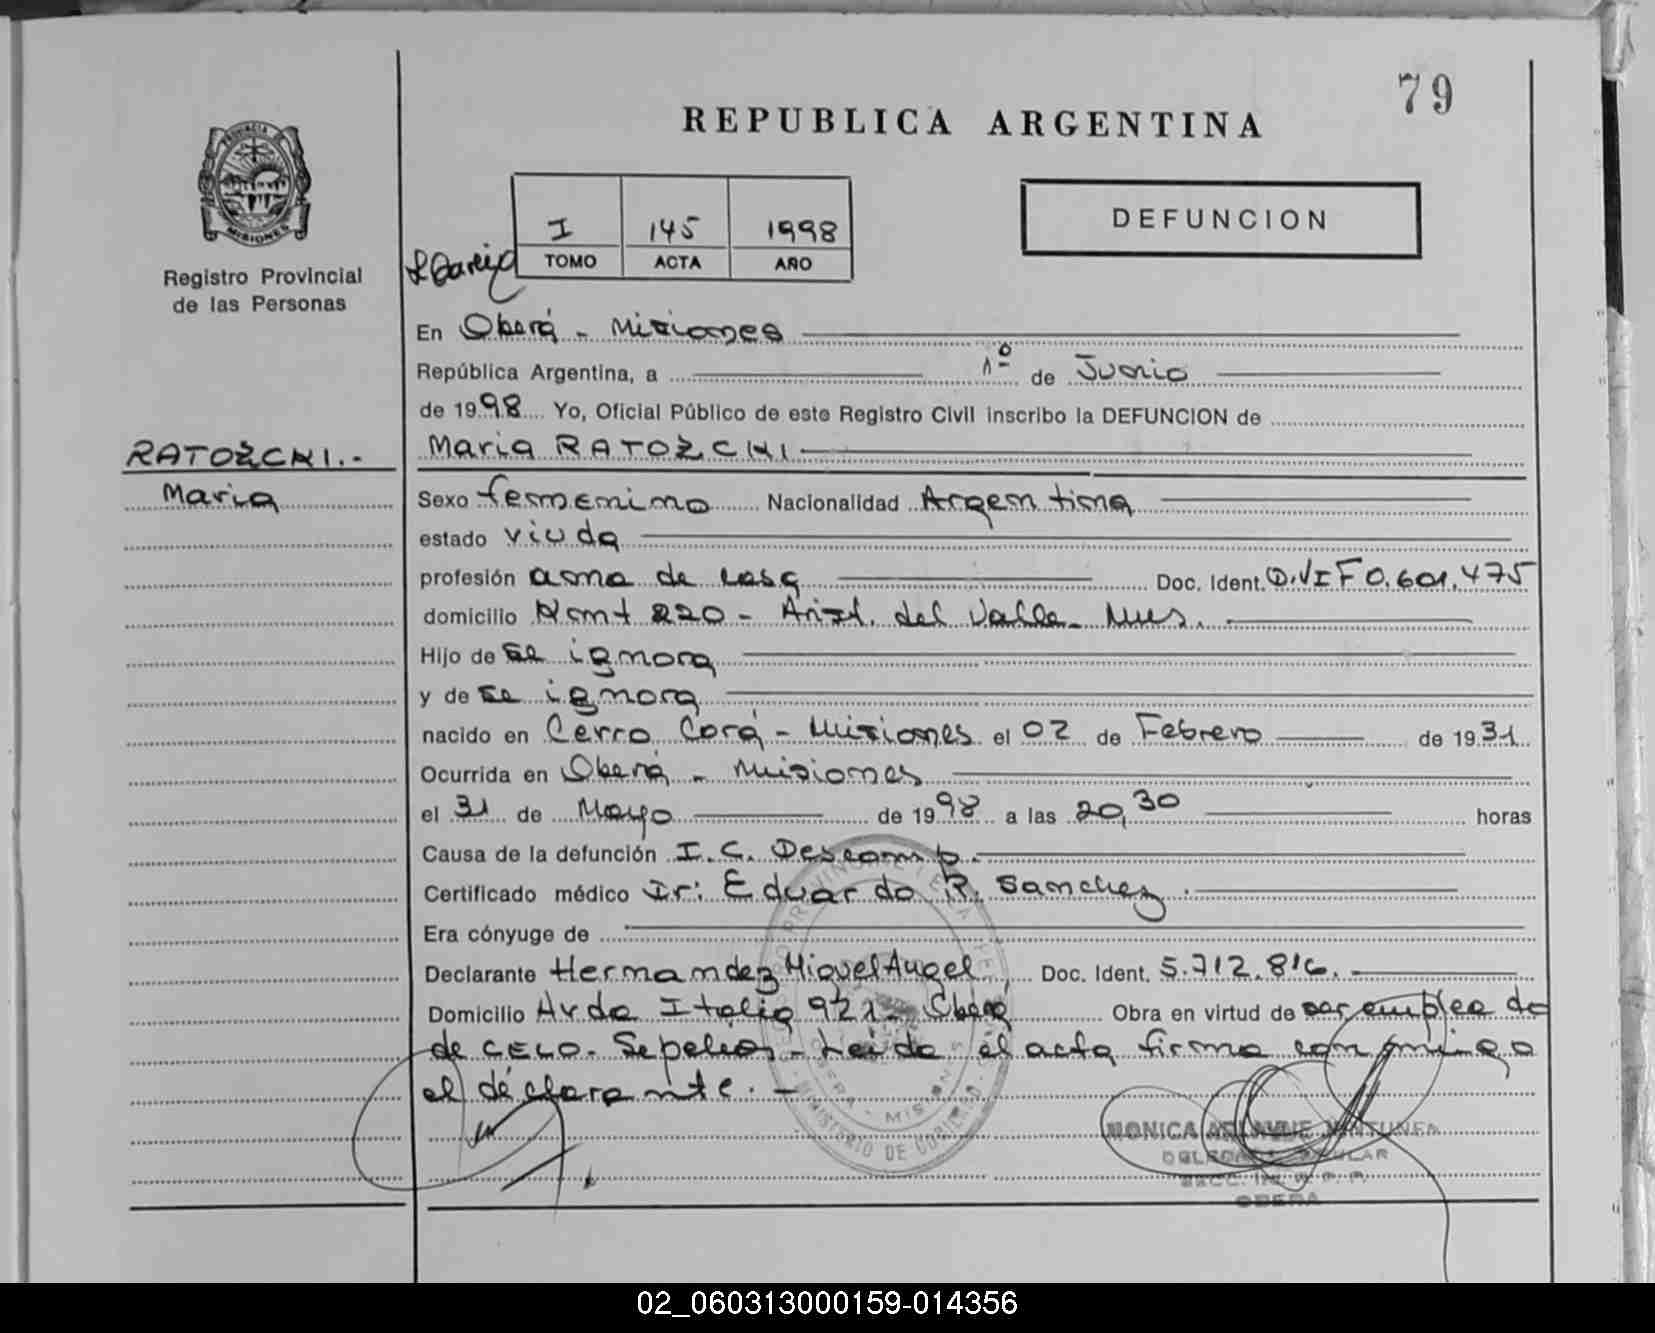 79
REPUBLICA ARGENTINA
PROVINCIA
MISIONES
Registro Provincial
de las Personas
I 145 1998
TOMO ACTA AÑO
DEFUNCION
En Oberá - Misiones
República Argentina, a 1º de Junio
de 1998 Yo, Oficial Público de este Registro Civil inscribo la DEFUNCION de
RATOŻCKI.-
Maria RATOŻCKI
Maria
Sexo femenino Nacionalidad Argentina
estado viuda
profesión ama de casa Doc. Ident. D.N.I F 0.601.475
domicilio 220 - Arist. del Valle - Mnes.
Hijo de se ignora
y de se ignora
nacido en Cerro Corá - Misiones el 02 de Febrero de 1931
Ocurrida en Oberá - Misiones
el 31 de Mayo de 1998 a las 20,30 horas
Causa de la defunción I.C. Descomp.
Certificado médico Dr: Eduardo R. Sanchez.
Era cónyuge de
Declarante Hernandez Miguel Angel, Doc. Ident. 5.712.816.
Domicilio Avda Italia 921 - Oberá Obra en virtud de ser empleado
de CELO. Sepelios - Leida el acta firma conmigo
el declarante. -
MINISTERIO DE GOBIERNO
OBERA - MISIONES
MONICA
TITULAR
OBERA
02_060313000159-014356